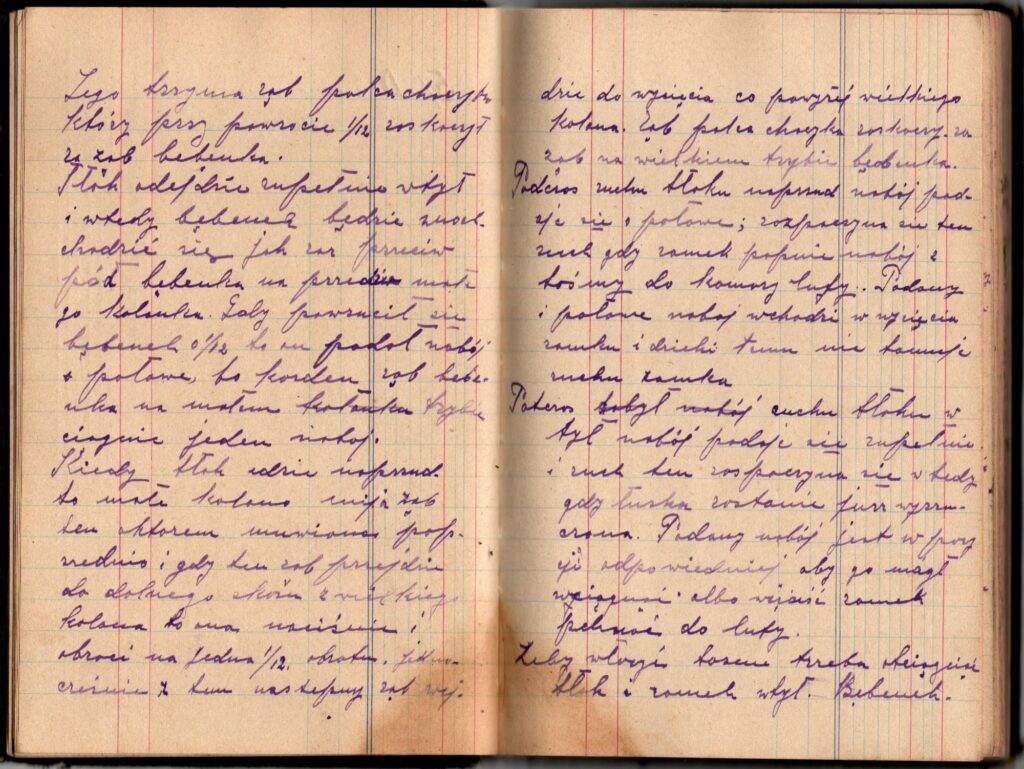 Lego trzyma ząb palca chaczyka
który przy powrocie 1/12 zoskoczył
za ząb bębenka.
Tłok odejdzie zupełnie wtył
i wtedy bębenek będzie
chodzić się jak raz przeciw
bębenka na przedzie małe
go kolanka. Gdy powrucił się
bębenek o 1/12 to on podał nabój
o połowe, bo kożden ząb bębe-
nka na małem kolanku trybie
ciągnie jeden naboj.
Kiedy tłok idzie naprzud
to małe kolano mija ząb
ten oktorem muwiono pop-
rzednio i gdy ten ząb przejdzie
do dolnego skosu z wielkiego
kolana to ona naciśnie i
obroci na jedna 1/12 obrotu. jedno-
cześnie z tem następny ząb wej-
dzie do wycięcia co powyżej wielkiego
kolana. Ząb palca chaczyka zoskoczy za
ząb na wielkiem trybie bębenka.
Podczos ruchu tłoku naprzud nabój pod-
aje się o połowe; rozpoczyna się ten
ruch gdy zamek popnie nabój z
tośmy do komory lufy. Podany
i połowe naboj wchodzi w wycięcia
zamku i dzięki temu nie tamuje
ruchu zamka
Poteros nabój ruchu tłoku w
tył nabój podaje się zupełnie
i ruch ten rospoczyna się wtedy
gdy łuska zostanie jusz wyrzu-
cona. Podany nabój jest w pozy
cji odpowiedniej aby go magł
wciągnąć albo wziąść zamek
pchnąć do lufy.
Żeby włożyć tasme trzeba obciągnąć
tłok i zamek wtył. Bębenek.